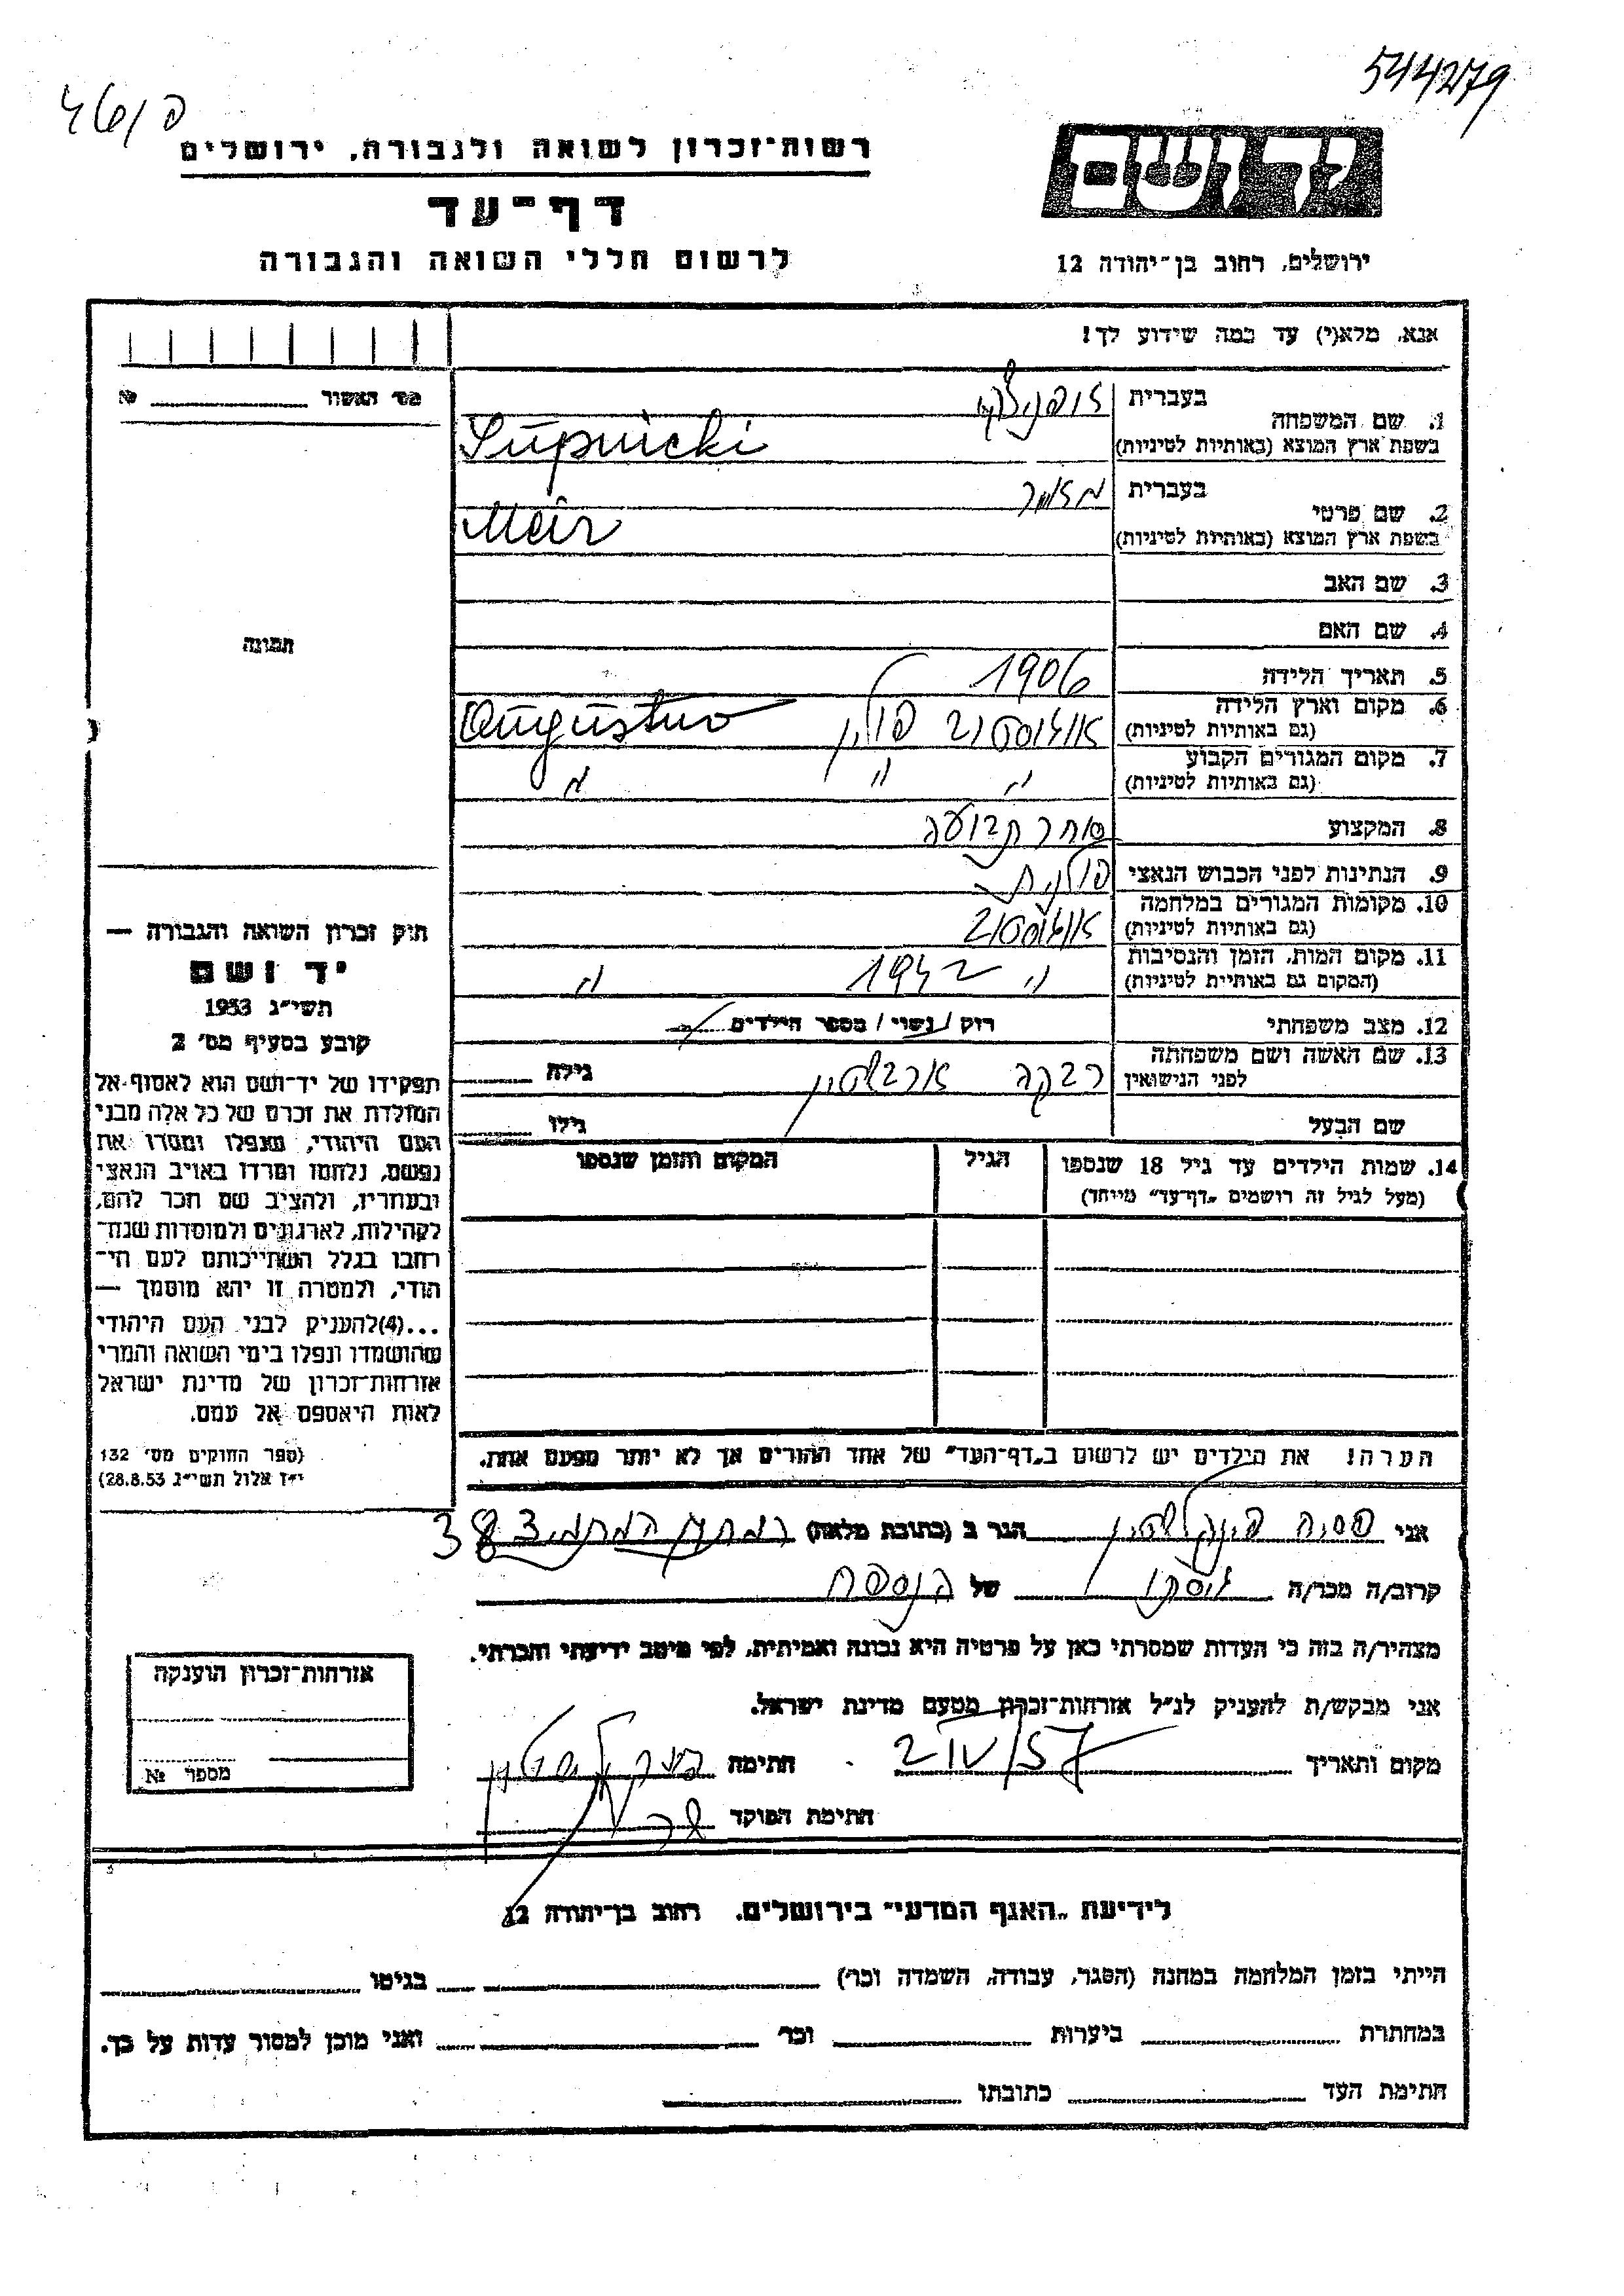 544279
רשות־זכרון לשואה ולגבורה, ירושלים
דף־עד
לרשום חללי השואה והגבורה
יד ושם
ירושלים, רחוב בן־יהודה 12
אנא, מלא(י) עד כמה שידוע לך!
מס׳ האשור № 
1. שם המשפחה בעברית
בשפת ארץ המוצא (באותיות לטיניות) Supnicki
2. שם פרטי בעברית מאיר
בשפת ארץ המוצא (באותיות לטיניות) Meir
3. שם האב
4. שם האם
תמונה
5. תאריך הלידה 1906
6. מקום וארץ הלידה אוגוסטוב פולין Augustuv
(גם באותיות לטיניות)
7. מקום המגורים הקבוע " " "
(גם באותיות לטיניות)
8. המקצוע סוחר תבואה
9. הנתינות לפני הכבוש הנאצי פולנית
10. מקומות המגורים במלחמה אוגוסטוב
(גם באותיות לטיניות)
11. מקום המות, הזמן והנסיבות " 1942 "
(המקום גם באותיות לטיניות)
12. מצב משפחתי רוק / נשוי / מספר הילדים
13. שם האשה ושם משפחתה רבקה גילה
לפני הנישואין
שם הבעל גילו
14. שמות הילדים עד גיל 18 שנספו הגיל המקום והזמן שנספו
(מעל לגיל זה רושמים „דף־עד” מיוחד)
חוק זכרון השואה והגבורה —
יד ושם
תשי״ג 1953
קובע בסעיף מס׳ 2
תפקידו של יד־ושם הוא לאסוף אל
המולדת את זכרם של כל אלה מבני
העם היהודי, שנפלו ומסרו את
נפשם, נלחמו ומרדו באויב הנאצי
ובעוזריו, ולהציב שם וזכר להם,
לקהילות, לארגונים ולמוסדות שנח־
רבו בגלל השתייכותם לעם הי־
הודי, ולמטרה זו יהא מוסמך —
...(4)להעניק לבני העם היהודי
שהושמדו ונפלו בימי השואה והמרי
אזרחות־זכרון של מדינת ישראל
לאות היאספם אל עמם.
(ספר החוקים מס׳ 132
י״ז אלול תשי״ג 28.8.53)
הערה! את הילדים יש לרשום ב„דף־העד” של אחד ההורים אך לא יותר מפעם אחת.
אני פסיה פינקלשטין הגר ב (כתובת מלאה) 38
קרוב/ה מכר/ה גיסתו של הנספה
מצהיר/ה בזה כי העדות שמסרתי כאן על פרטיה היא נכונה ואמיתית, לפי מיטב ידיעתי והכרתי.
אני מבקש/ת להעניק לנ״ל אזרחות־זכרון מטעם מדינת ישראל.
מקום ותאריך 2/IV/57 חתימה פינקלשטין
חתימת הפוקד
אזרחות־זכרון הוענקה
מספר №
לידיעת „האגף המדעי” בירושלים. רחוב בן־יהודה 12
הייתי בזמן המלחמה במחנה (הסגר, עבודה, השמדה וכר׳) בגיטו
במחתרת ביערות וכר׳ ואני מוכן למסור עדות על כך.
חתימת העד כתובתו